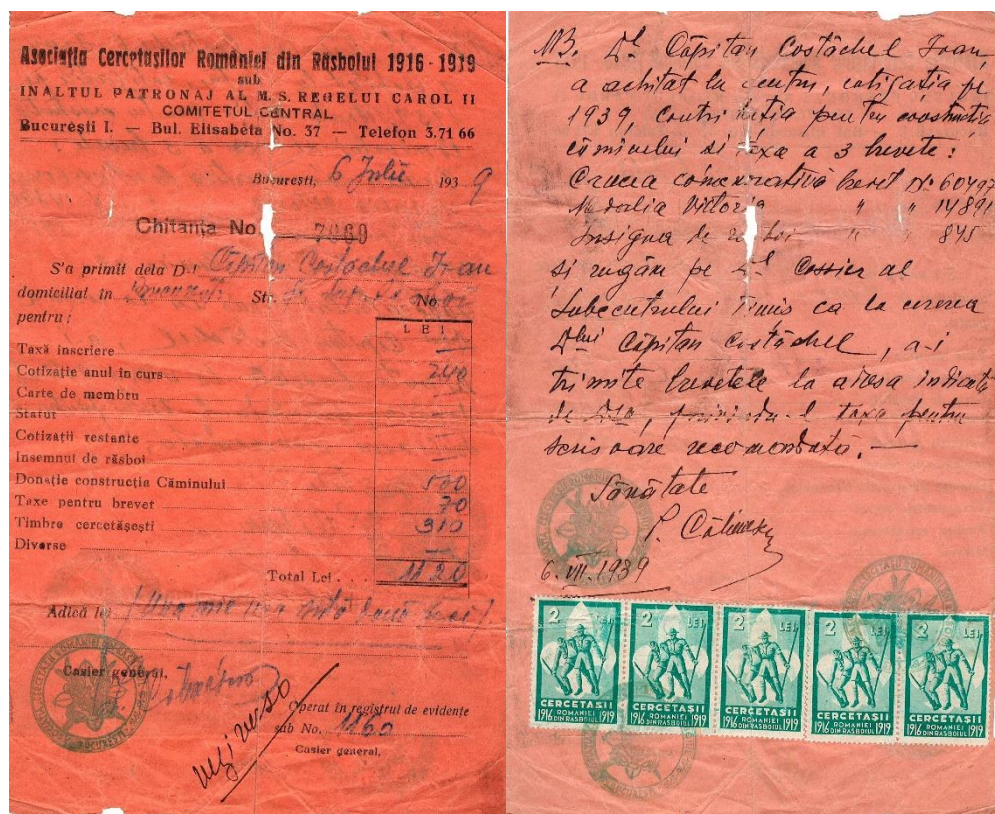 Asociația Cercetașilor României din Răsboiul 1916 - 1919
sub
INALTUL PATRONAJ AL M. S. REGELUI CAROL II
COMITETUL CENTRAL
București I. — Bul. Elisabeta No. 37 — Telefon 3.71 66
București, 6 Iulie 1939
Chitanța No. 7069
S'a primit dela D-l Căpitan Costăchel Ioan
domiciliat în Str. No.
pentru :
LEI
Taxă inscriere —
Cotizație anul in curs 240
Carte de membru —
Statut —
Cotizații restante —
Insemnul de răsboi —
Donație construcția Căminului 500
Taxe pentru brevet 70
Timbre cercetășești 310
Diverse —
Total Lei . . . 1120
Adică lei (Una mie una sută două zeci)
Casier general,
Operat în registrul de evidente
sub No. 1160
Casier general,
vezi verso
NB. Dl Căpitan Costăchel Ioan
a achitat la centru, cotizația pe
1939, contribuția pentru construcția
căminului si taxa a 3 brevete:
Crucea comemorativă brevet No 60497
Medalia Victoria " " 14891
Insigna de răsboi " " 845
și rugăm pe Dl Cassier al
Subcentrului Timiș ca la cererea
Dlui Căpitan Costăchel, a-i
trimite brevetele la adresa indicată
de Dsa, taxa pentru
scrisoare recomandată. —
Sănătate
6. VII. 1939
2 LEI 2 LEI 2 LEI 2 LEI 2 LEI
CERCETASII CERCETASII CERCETASII CERCETASII CERCETASII
ROMANIEI ROMANIEI ROMANIEI ROMANIEI ROMANIEI
1916 DIN RASBOIUL 1919 1916 DIN RASBOIUL 1919 1916 DIN RASBOIUL 1919 1916 DIN RASBOIUL 1919 1916 DIN RASBOIUL 1919